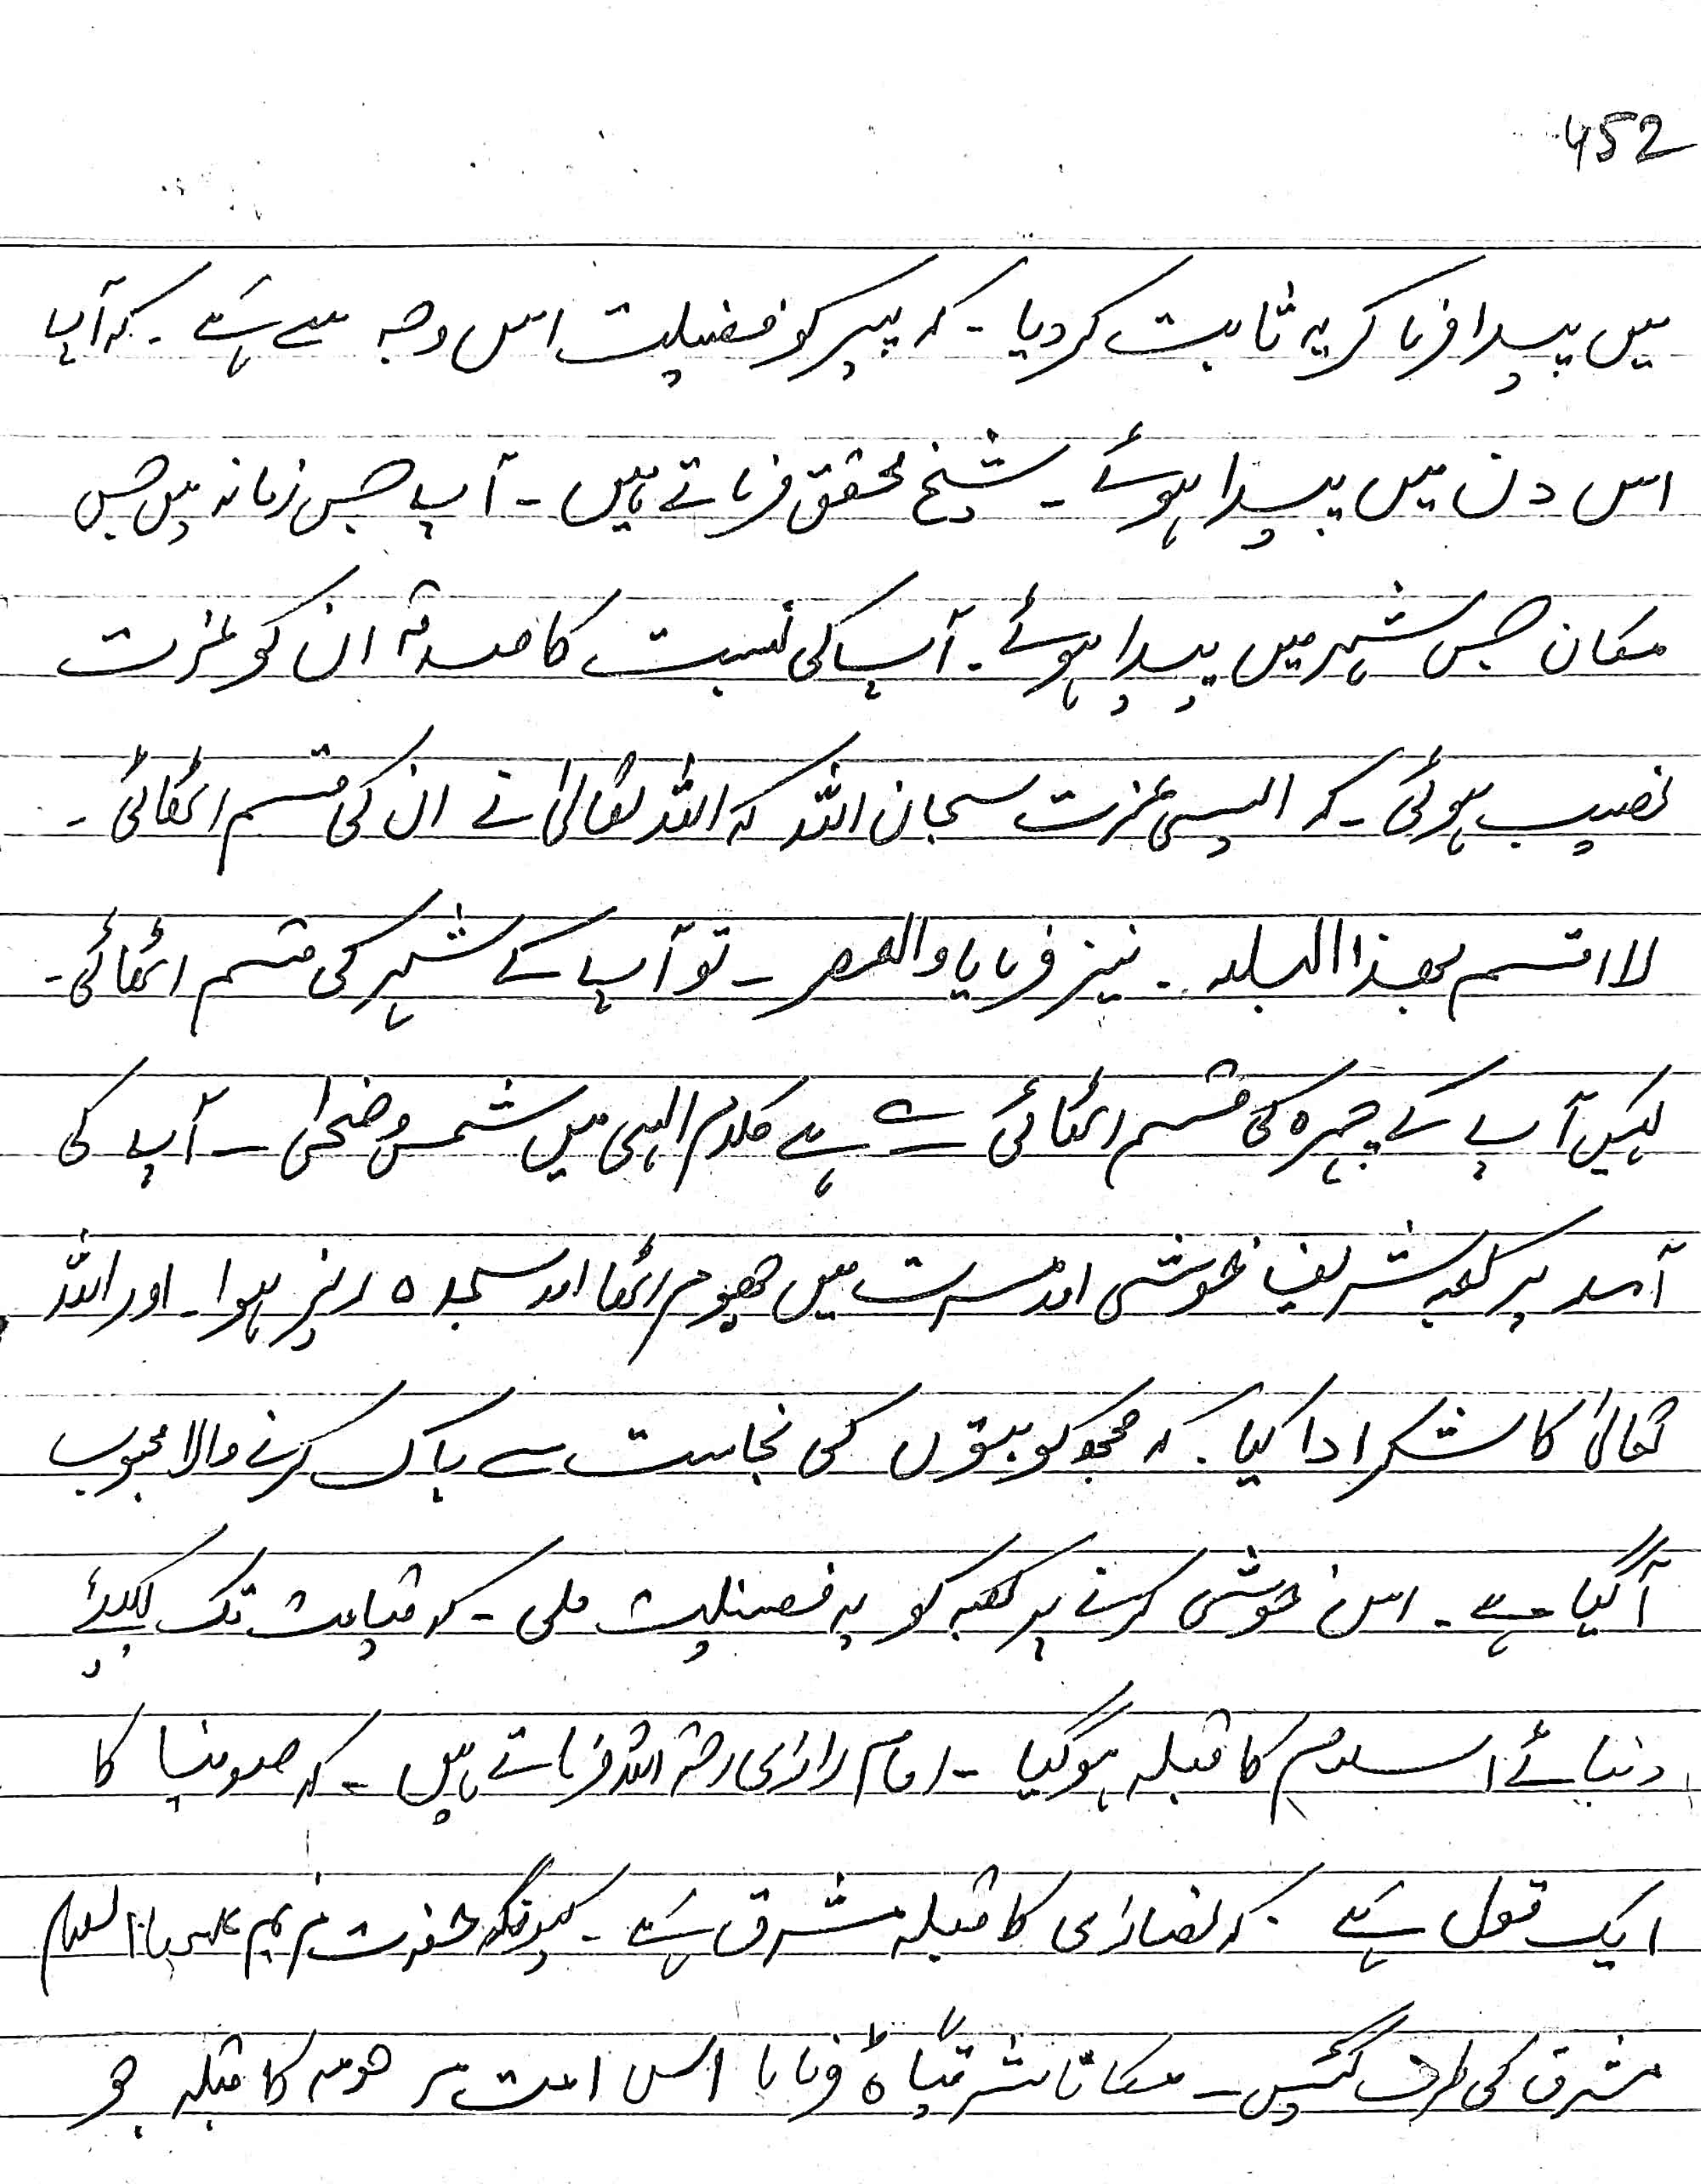 452
میں پیدا فرما کر یہ ثابت کر دیا ۔ کہ پیر کو فضیلت اس وجہ سے ہے ۔ کہ آپ
اس دن میں پیدا ہوئے ۔ شیخ محقق فرماتے ہیں ۔ آپ جس زمانہ میں جس
مکان جس شہر میں پیدا ہوئے ۔ آپ کی نسبت کا صدقہ ان کو عزت
نصیب ہوئی ۔ کہ ایسی عزت سبحان اللہ کہ اللہ تعالیٰ نے ان کی قسم اٹھائی ۔
لا اقسم بھذا البلد ۔ نیز فرمایا والعصر ۔ تو آپ کے شہر کی قسم اٹھائی ۔
لیکن آپ کے چہرہ کی قسم اٹھائی ہے کلام الہی میں شمس و ضحی ۔ آپ کی
آمد پر کعبہ شریف خوشی اور مسرت میں جھوم اٹھا اور سجدہ ریز ہوا ۔ اور اللہ
تعالیٰ کا شکر ادا کیا ۔ کہ مجھ کو بتوں کی نجاست سے پاک کرنے والا محبوب
آگیا ہے ۔ اس خوشی کرنے پر کعبہ کو یہ فضیلت ملی ۔ کہ قیامت تک کیلئے
دنیائے اسلام کا قبلہ ہوگیا ۔ امام رازی رحمۃ اللہ فرماتے ہیں ۔ کہ صوفیا کا
ایک قول ہے ۔ کہ نصاریٰ کا قبلہ مشرق ہے ۔ کیونکہ حضرت مریم علیہا السلام
مشرق کی طرف گئیں ۔ مکانا شرقیاً فرمایا اس امت مرحومہ کا قبلہ جو